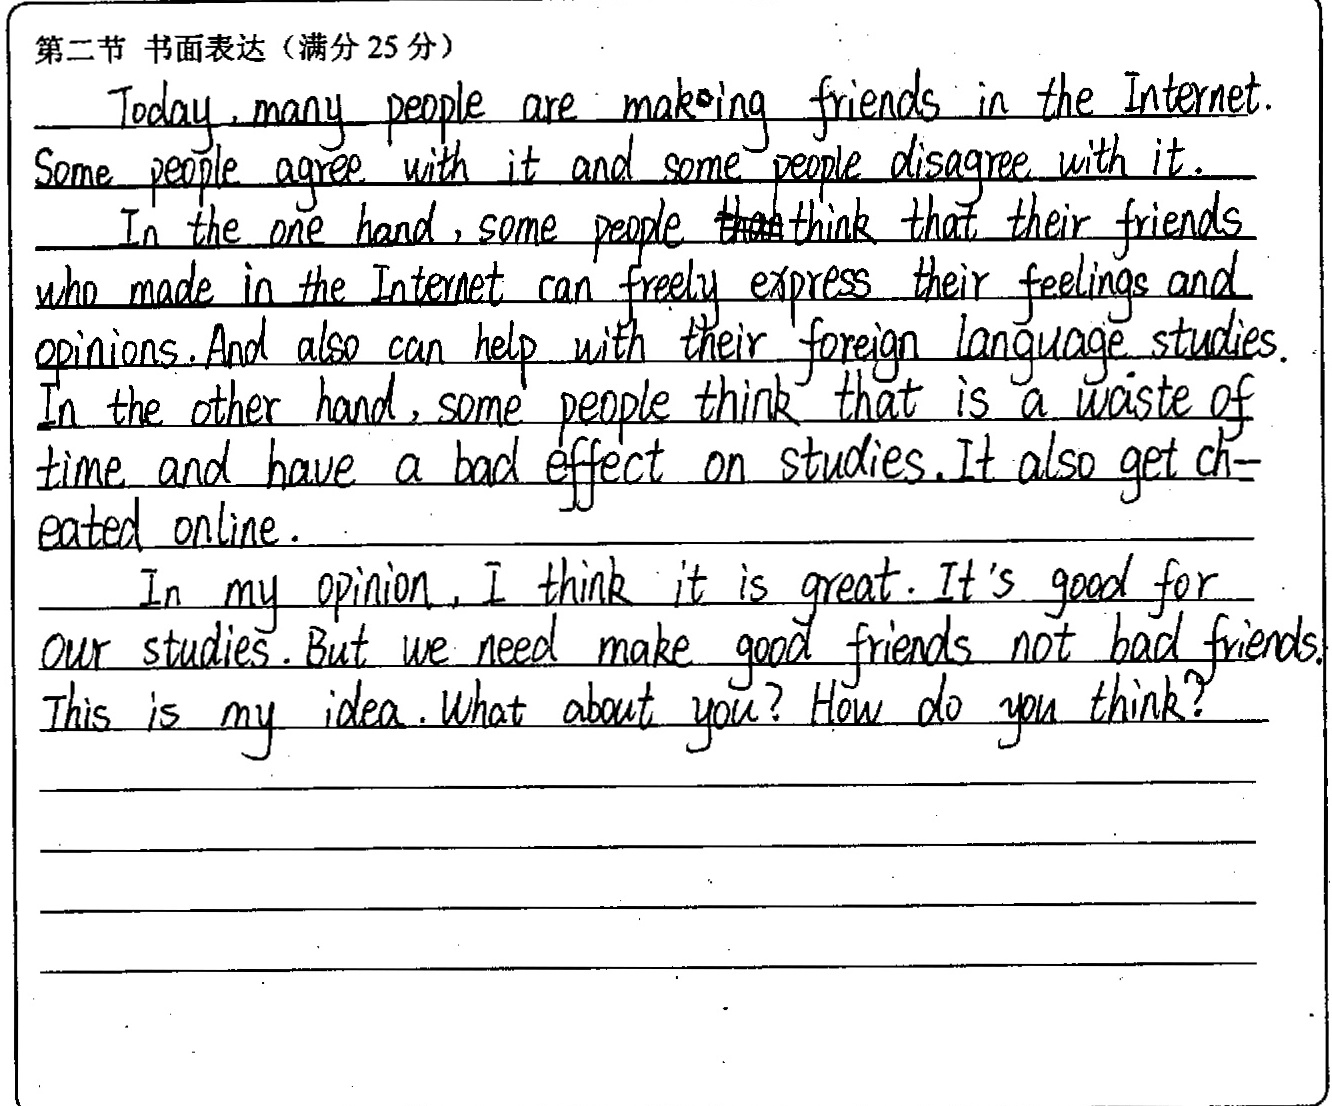 第二节 书面表达（满分 25 分）
Today, many people are making friends in the Internet.
Some people agree with it and some people disagree with it.
In the one hand, some people think that their friends
who made in the Internet can freely express their feelings and
opinions. And also can help with their foreign language studies.
In the other hand, some people think that is a waste of
time and have a bad effect on studies. It also get ch-
eated online.
In my opinion, I think it is great. It's good for
our studies. But we need make good friends not bad friends.
This is my idea. What about you? How do you think?